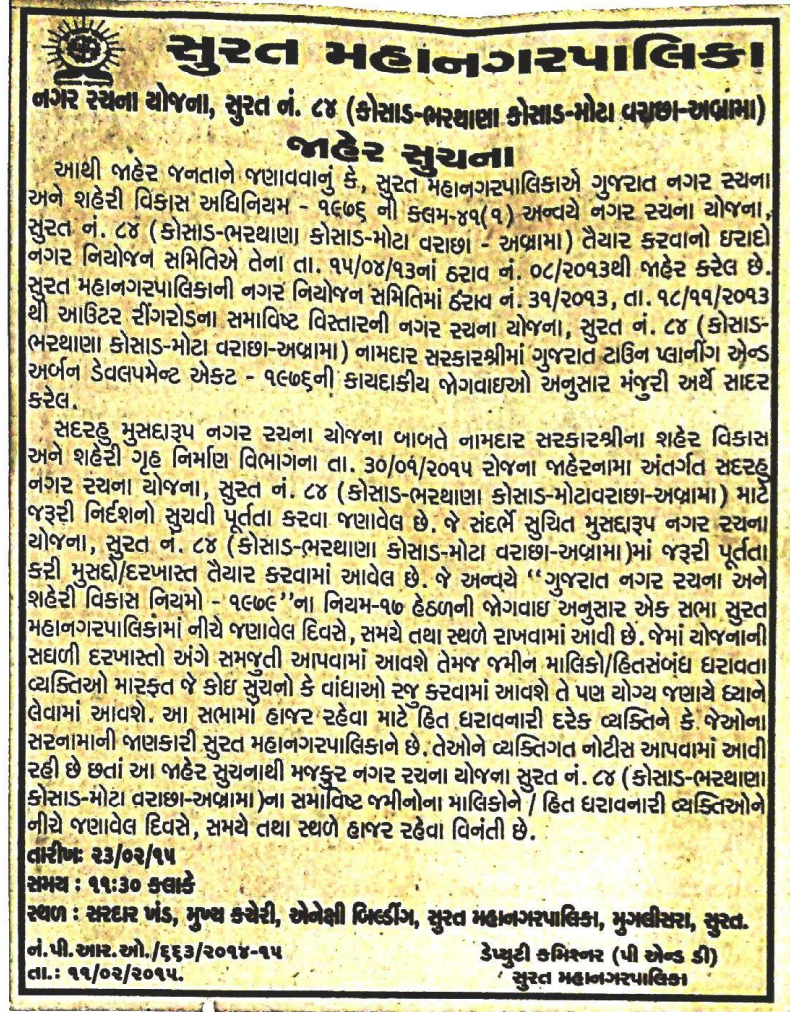 સુરત મહાનગરપાલિકા
નગર રચના યોજના, સુરત નં. ૮૪ (કોસાડ-ભરથાણા કોસાડ-મોટા વરાછા-અબ્રામા)
જાહેર સુચના
આથી જાહેર જનતાને જણાવવાનું કે, સુરત મહાનગરપાલિકાએ ગુજરાત નગર રચના
અને શહેરી વિકાસ અધિનિયમ - ૧૯૭૬ ની કલમ-૪૧(૧) અન્વયે નગર રચના યોજના,
સુરત નં. ૮૪ (કોસાડ-ભરથાણા કોસાડ-મોટા વરાછા - અબ્રામા) તૈયાર કરવાનો ઇરાદો
નગર નિયોજન સમિતિએ તેના તા. ૧૫/૦૪/૧૩નાં ઠરાવ નં. ૦૮/૨૦૧૩થી જાહેર કરેલ છે.
સુરત મહાનગરપાલિકાની નગર નિયોજન સમિતિમાં ઠરાવ નં. ૩૧/૨૦૧૩, તા. ૧૮/૧૧/૨૦૧૩
થી આઉટર રીંગરોડના સમાવિષ્ટ વિસ્તારની નગર રચના યોજના, સુરત નં. ૮૪ (કોસાડ-
ભરથાણા કોસાડ-મોટા વરાછા-અબ્રામા) નામદાર સરકારશ્રીમાં ગુજરાત ટાઉન પ્લાનીંગ એન્ડ
અર્બન ડેવલપમેન્ટ એકટ - ૧૯૭૬ની કાયદાકીય જોગવાઇઓ અનુસાર મંજુરી અર્થે સાદર
કરેલ.
સદરહુ મુસદ્દારૂપ નગર રચના યોજના બાબતે નામદાર સરકારશ્રીના શહેર વિકાસ
અને શહેરી ગૃહ નિર્માણ વિભાગના તા. ૩૦/૦૧/૨૦૧૫ રોજના જાહેરનામા અંતર્ગત સદરહુ
નગર રચના યોજના, સુરત નં. ૮૪ (કોસાડ-ભરથાણા કોસાડ-મોટાવરાછા-અબ્રામા) માટે
જરૂરી નિર્દેશનો સુચવી પૂર્તતા કરવા જણાવેલ છે. જે સંદર્ભે સુચિત મુસદ્દારૂપ નગર રચના
યોજના, સુરત નં. ૮૪ (કોસાડ-ભરથાણા કોસાડ-મોટા વરાછા-અબ્રામા)માં જરૂરી પૂર્તતા
કરી મુસદ્દો/દરખાસ્ત તૈયાર કરવામાં આવેલ છે. જે અન્વયે "ગુજરાત નગર રચના અને
શહેરી વિકાસ નિયમો - ૧૯૭૯"ના નિયમ-૧૭ હેઠળની જોગવાઇ અનુસાર એક સભા સુરત
મહાનગરપાલિકામાં નીચે જણાવેલ દિવસે, સમયે તથા સ્થળે રાખવામાં આવી છે. જેમાં યોજનાની
સઘળી દરખાસ્તો અંગે સમજુતી આપવામાં આવશે તેમજ જમીન માલિકો/હિતસંબંધ ધરાવતા
વ્યક્તિઓ મારફત જે કોઇ સુચનો કે વાંધાઓ રજુ કરવામાં આવશે તે પણ યોગ્ય જણાયે ધ્યાને
લેવામાં આવશે. આ સભામાં હાજર રહેવા માટે હિત ધરાવનારી દરેક વ્યક્તિને કે જેઓના
સરનામાની જાણકારી સુરત મહાનગરપાલિકાને છે. તેઓને વ્યક્તિગત નોટીસ આપવામાં આવી
રહી છે છતાં આ જાહેર સુચનાથી મજકુર નગર રચના યોજના સુરત નં. ૮૪ (કોસાડ-ભરથાણા
કોસાડ-મોટા વરાછા-અબ્રામા)ના સમાવિષ્ટ જમીનોના માલિકોને / હિત ધરાવનારી વ્યક્તિઓને
નીચે જણાવેલ દિવસે, સમયે તથા સ્થળે હાજર રહેવા વિનંતી છે.
તારીખઃ ૨૩/૦૨/૧૫
સમય : ૧૧:૩૦ કલાકે
સ્થળ : સરદાર ખંડ, મુખ્ય કચેરી, એનેક્ષી બિલ્ડીંગ, સુરત મહાનગરપાલિકા, મુગલીસરા, સુરત.
નં.પી.આર.ઓ./૬૬૩/૨૦૧૪-૧૫
ડેપ્યુટી કમિશ્નર (પી એન્ડ ડી)
તા.: ૧૧/૦૨/૨૦૧૫.
સુરત મહાનગરપાલિકા